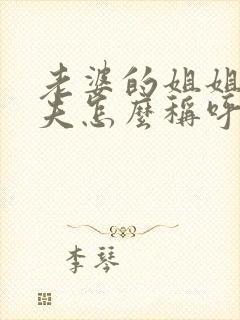 老婆的姐姐
夫怎麼稱呼
李琴